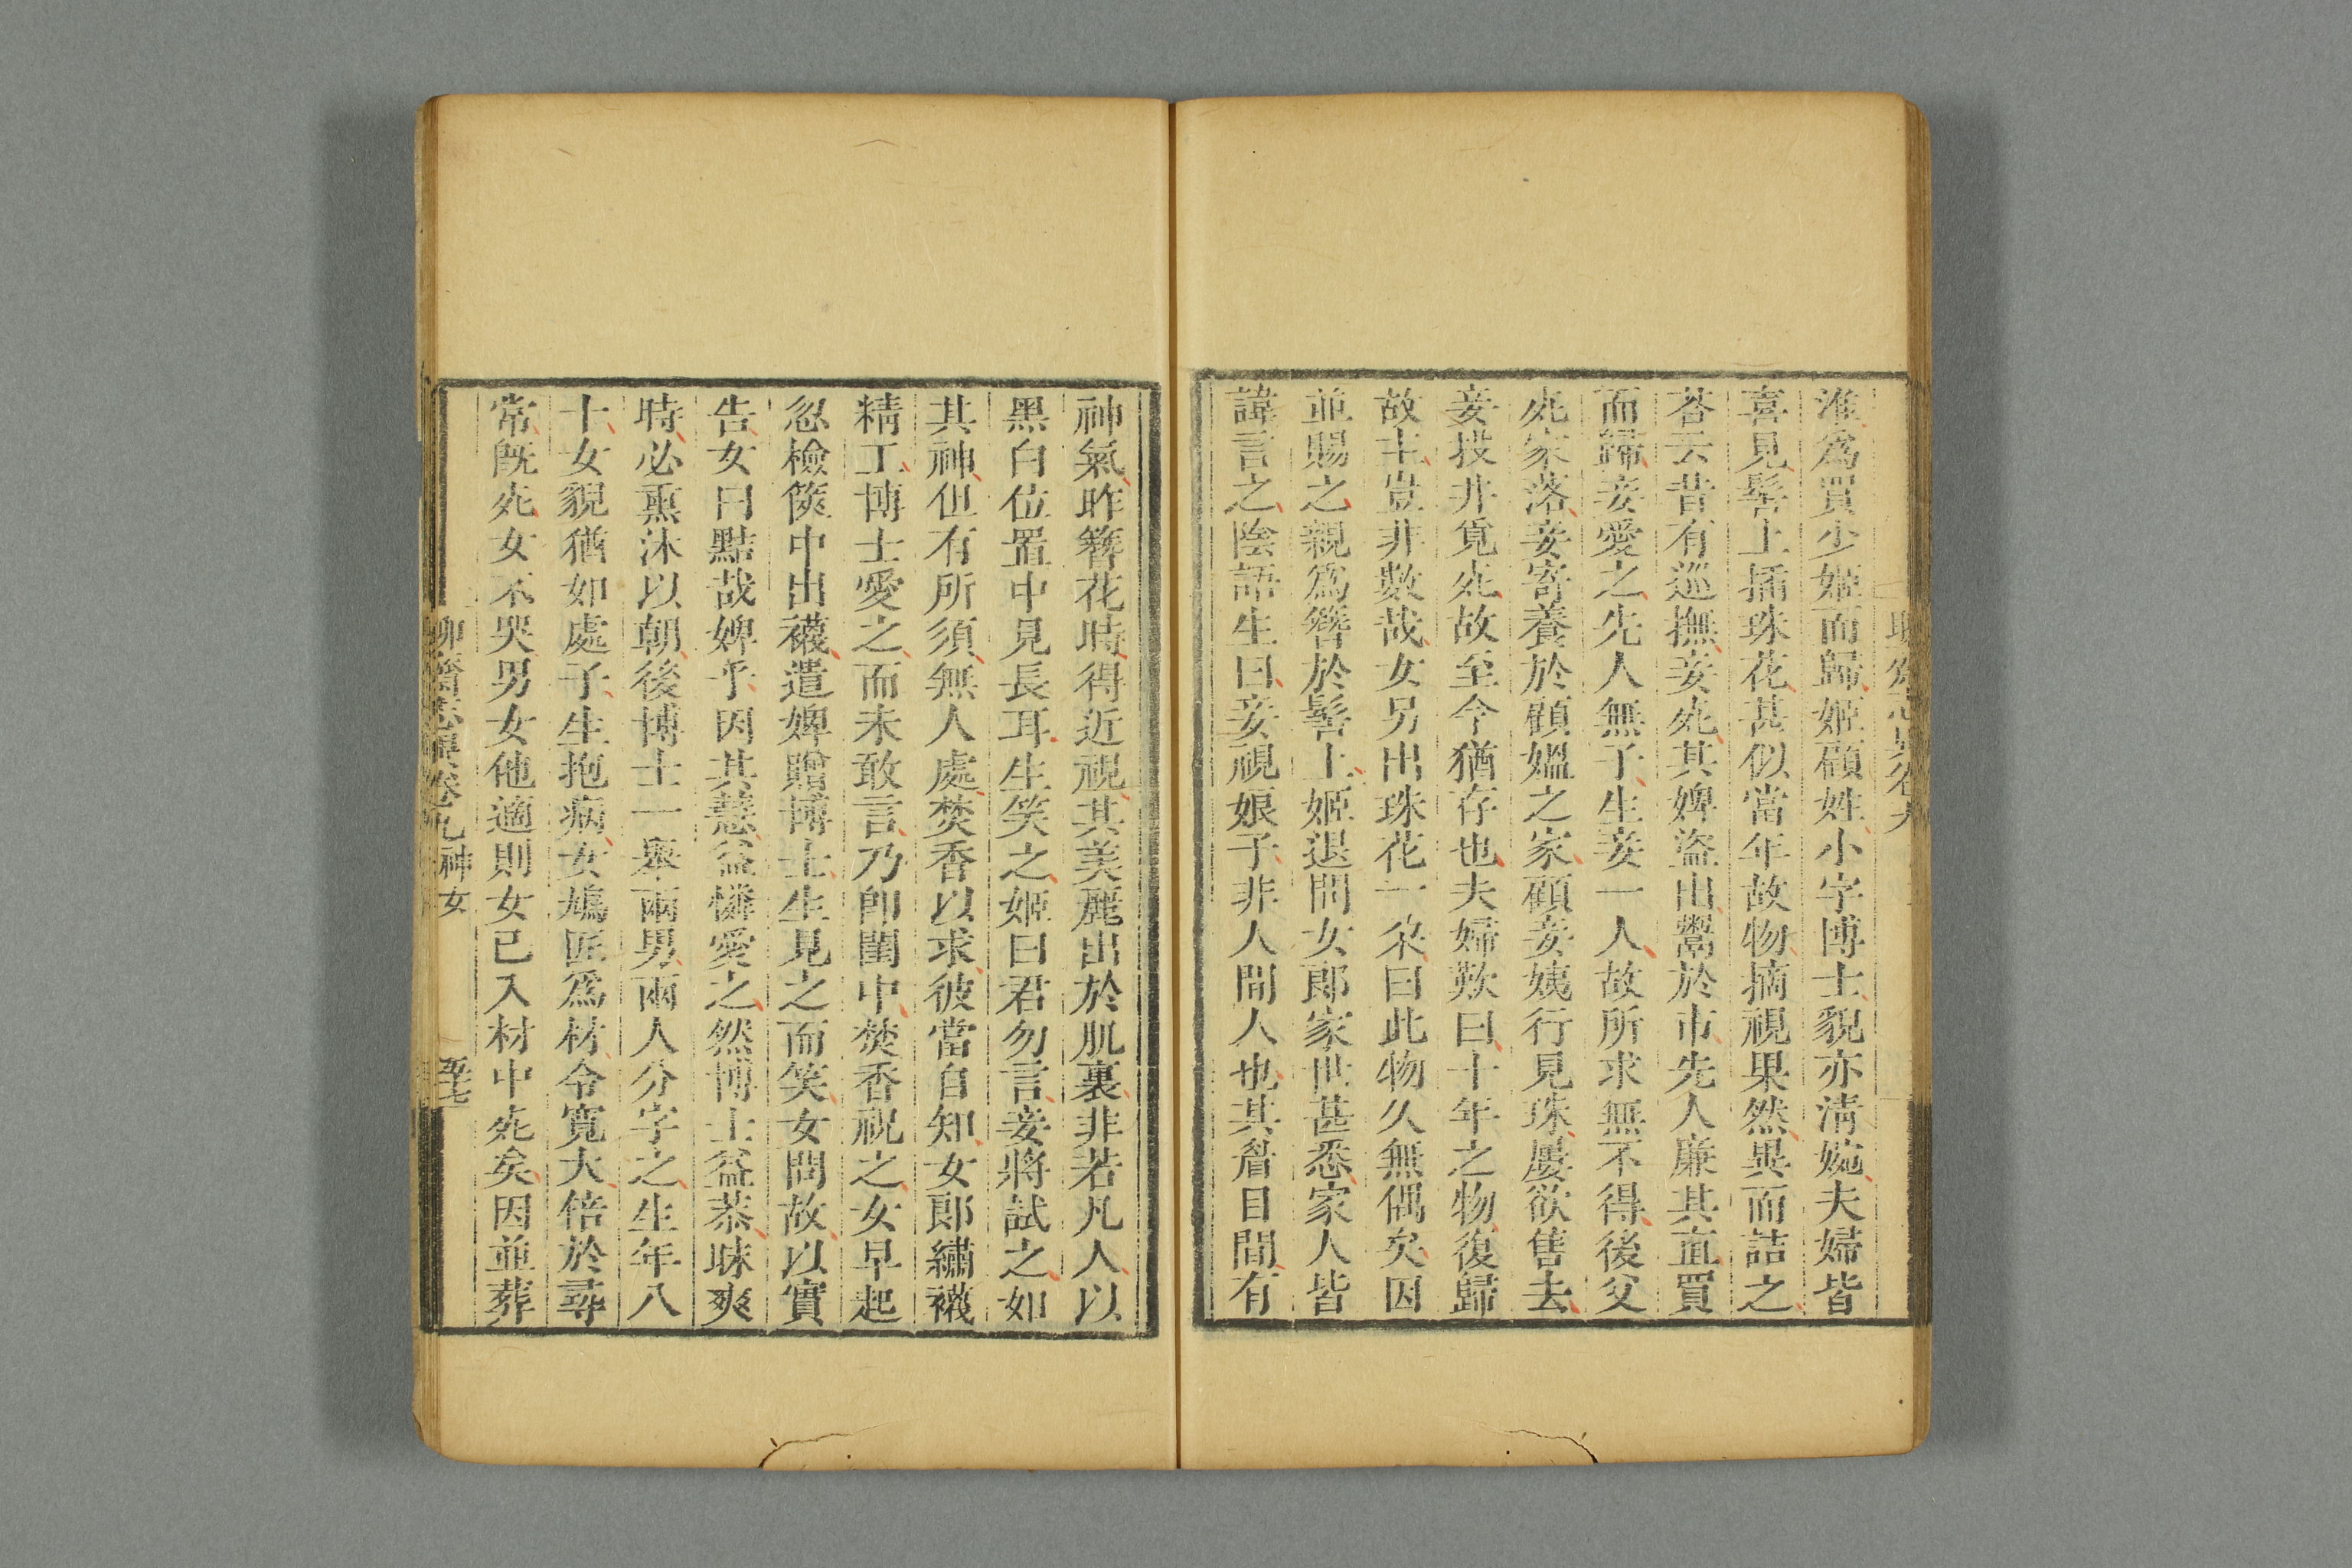 淮爲買少姬而歸姬顧姓小字博士貌亦清婉夫婦皆
喜見髻上插珠花甚似當年故物摘視果然異而詰之
荅云昔有巡撫妾死其婢盜出鬻於市先人廉其直買
而歸妾愛之先人無子生妾一人故所求無不得後父
死家落妾寄養於顧媼之家顧妾姨行見珠屢欲售去
妾投井覓死故至今猶存也夫婦歎曰十年之物復歸
故主豈非數哉女另出珠花一朶曰此物久無偶矣因
並賜之親爲簪於髻上姬退問女郎家世甚悉家人皆
諱言之陰語生曰妾視娘子非人間人也其眉目間有
神氣昨簪花時得近視其美麗出於肌裏非若凡人以
黑白位置中見長耳生笑之姬曰君勿言妾將試之如
其神但有所須無人處焚香以求彼當自知女郎繡襪
精工博士愛之而未敢言乃卽閨中焚香祝之女早起
忽檢篋中出襪遣婢贈博士生見之而笑女問故以實
告女曰黠哉婢乎因其慧益憐愛之然博士益恭昧爽
時必熏沐以朝後博士一舉兩男兩人分字之生年八
十女貌猶如處子生抱病女鳩匠爲材令寬大倍於尋
常旣死女不哭男女他適則女已入材中死矣因並葬
聊齋志異卷九 神女